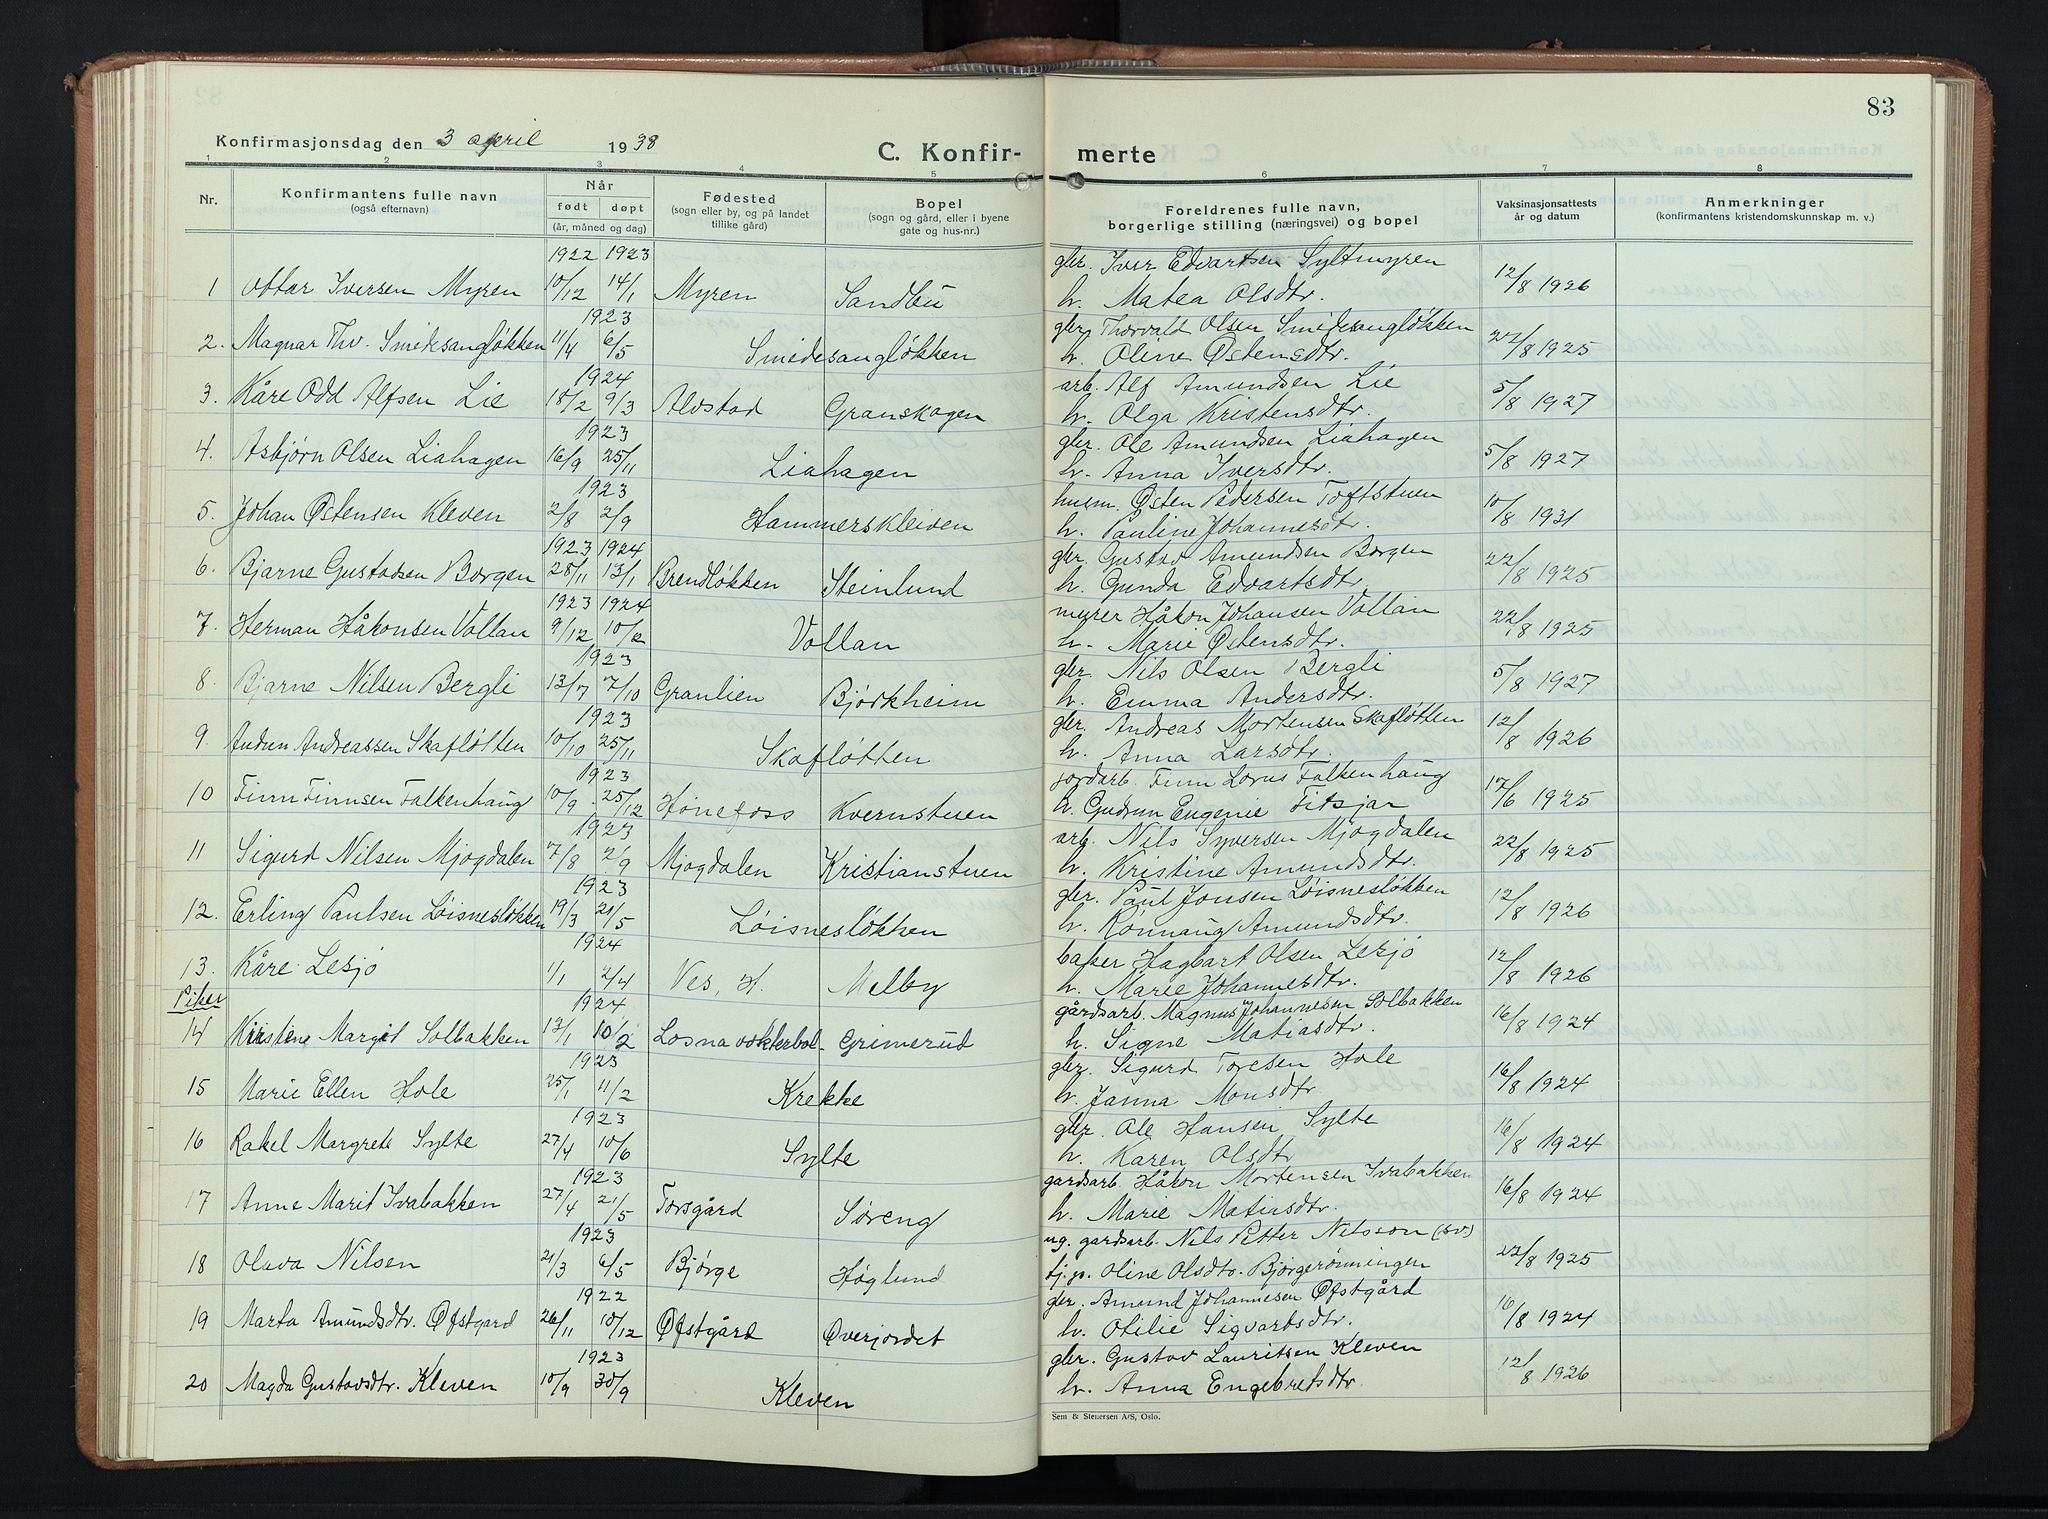 83
Konfirmasjonsdag den 3 april 1938
C. Konfirmerte
1 2 3 4 5 6 7 8
Nr.
Konfirmantens fulle navn (også efternavn)
Når født døpt (år, måned og dag)
Fødested (sogn eller by, og på landet tillike gård)
Bopel (sogn og gård, eller i byene gate og hus-nr.)
Foreldrenes fulle navn, borgerlige stilling (næringsvei) og bopel
Vaksinasjonsattests år og datum
Anmerkninger (konfirmantens kristendomskunnskap m. v.)
1922 1923 gbr. Iver Edvartsen Syltmyren
1 Ottar Iversen Myren 10/12 14/1 Myren Sandbu h. Matea Olsdtr. 12/8 1926
1923 gbr. Thorvald Olsen Smidesangløkken
2. Magnar Thv. Smidesangløkken 11/4 6/5 Smidesangløkken h. Oline Østensdtr. 22/8 1925
1924 arb. Alf Amundsen Lie
3. Kåre Odd Alfsen Lie 18/2 9/3 Alvstad Granskogen h. Olga Kristensdtr. 5/8 1927
1923 gbr. Ole Amundsen Liahagen
4. Asbjørn Olsen Liahagen 16/9 25/11 Liahagen h. Anna Iversdtr. 5/8 1927
1923 husm. Østen Pedersen Toftstuen
5. Johan Østensen Kleven 2/8 2/9 Hammerskleiven h. Pauline Johannesdtr. 10/8 1931
1923 1924 gbr. Gustav Amundsen Borgen
6. Bjarne Gustavsen Borgen 28/11 13/1 Brendløkken Steinlund h. Gunda Edvartsdtr. 22/8 1925
1923 1924 murer Håkon Johansen Vollan
7. Herman Håkonsen Vollan 9/12 10/2 Vollan h. Marie Østensdtr. 22/8 1925
1923 gbr. Nils Olsen Bergli
8. Bjarne Nilsen Bergli 13/7 7/10 Granlien Bjørkheim h. Emma Andersdtr. 5/8 1927
1923 gbr. Andreas Mortensen Skafløtten
9. Audun Andreassen Skafløtten 10/10 25/11 Skafløtten h. Anna Larsdtr. 12/8 1926
1923 jordarb. Finn Lorus Falkenhaug
10 Finn Finnsen Falkenhaug 10/9 25/12 Hønefoss Kvernstuen h. Gudrun Eugenie Fitsjar 17/6 1925
1923 arb. Nils Syversen Mjogdalen
11 Sigurd Nilsen Mjogdalen 7/8 2/9 Mjogdalen Kristianstuen h. Kristine Amundsdtr. 22/8 1925
1923 gbr. Paul Jonsen Løisnesløkken
12. Erling Paulsen Løisnesløkken 19/3 21/5 Løisnesløkken h. Rønnaug Amundsdtr. 12/8 1926
1924 baker Hagbart Olsen Lesjø
13. Kåre Lesjø 1/1 2/4 Ves, H. Melby h. Marie Johannesdtr. 12/8 1926
Piker 1924 gårdsarb. Magnus Johannesen Solbakken
14 Kristine Margit Solbakken 17/1 10/2 Losna vokterbol Grimerud h. Signe Matiasdtr. 16/8 1924
1923 gbr. Sigurd Toresen Hole
15 Marie Ellen Hole 25/1 11/2 Krekke h. Janna Monsdtr 16/8 1924
1923 gbr. Ole Hansen Sylte
16 Rakel Margrete Sylte 27/4 10/6 Sylte h. Karen Olsdtr 16/8 1924
1923 gardsarb. Håkon Mortensen Ivabakken
17 Anne Marit Ivabakken 27/4 21/5 Torsgård Søreng h. Marie Matiasdtr. 16/8 1924
1923 ug. gardsarb. Nils Petter Nilsson (sv)
18 Olava Nilsen 21/3 6/5 Bjørge Høglund tj.p. Oline Olsdtr. Bjørgerønningen 22/8 1925
1922 gbr. Amund Johannesen Øfstgård
19 Marta Amundsdtr. Øfstgard 26/11 10/12 Øfstgård Øverjordet h. Otilie Sigvartsdtr. 16/8 1924
1923 gbr. Gustav Lauritsen Kleven
20 Magda Gustavsdtr. Kleven 10/9 30/9 Kleven h. Anna Engebretsdtr 12/8 1926
Sem & Stenersen A/S, Oslo.